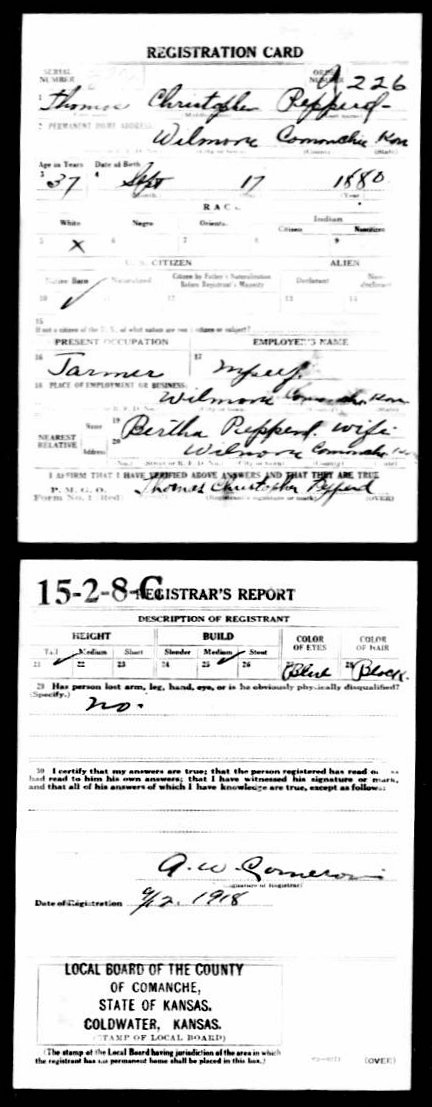 REGISTRATION CARD
SERIAL NUMBER ORDER NUMBER A 226
1 Thomas Christopher Repperd
2 PERMANENT HOME ADDRESS:
Wilmore Comanche Kan
Age in Years Date of Birth
3 37 4 Sept 17 1880
(Month) (Day) (Year)
RACE
White Negro Oriental Indian
Citizen Noncitizen
5 X 6 7 8 9
U. S. CITIZEN ALIEN
Native Born Naturalized Citizen by Father's Naturalization Before Registrant's Majority Declarant Non-declarant
10 ✓ 11 12 13 14
15
If not a citizen of the U. S., of what nation are you a citizen or subject?
PRESENT OCCUPATION EMPLOYER'S NAME
16 Farmer 17 Myself
18 PLACE OF EMPLOYMENT OR BUSINESS:
Wilmore Comanche Kan
NEAREST RELATIVE Name 19 Bertha Repperd. wife
Address 20 Wilmore Comanche
(No.) (Street or R. F. D. No.) (City or town) (County) (State)
I AFFIRM THAT I HAVE VERIFIED ABOVE ANSWERS AND THAT THEY ARE TRUE
P. M. G. O.
Form No. 1 (Red) Thomas Christopher Repperd
(Registrant's signature or mark) (OVER)
15-2-8-C REGISTRAR'S REPORT
DESCRIPTION OF REGISTRANT
HEIGHT BUILD COLOR OF EYES COLOR OF HAIR
Tall Medium Short Slender Medium Stout
21 ✓ 22 23 24 25 ✓ 26 27 Blue 28 Black
29 Has person lost arm, leg, hand, eye, or is he obviously physically disqualified?
(Specify.)
no.
30 I certify that my answers are true; that the person registered has read or has
had read to him his own answers; that I have witnessed his signature or mark,
and that all of his answers of which I have knowledge are true, except as follows:
A. W. Cameron
(Signature of Registrar)
Date of Registration 9/12. 1918
LOCAL BOARD OF THE COUNTY
OF COMANCHE,
STATE OF KANSAS.
COLDWATER, KANSAS.
(STAMP OF LOCAL BOARD)
(The stamp of the Local Board having jurisdiction of the area in which
the registrant has his permanent home shall be placed in this box.)
(OVER)